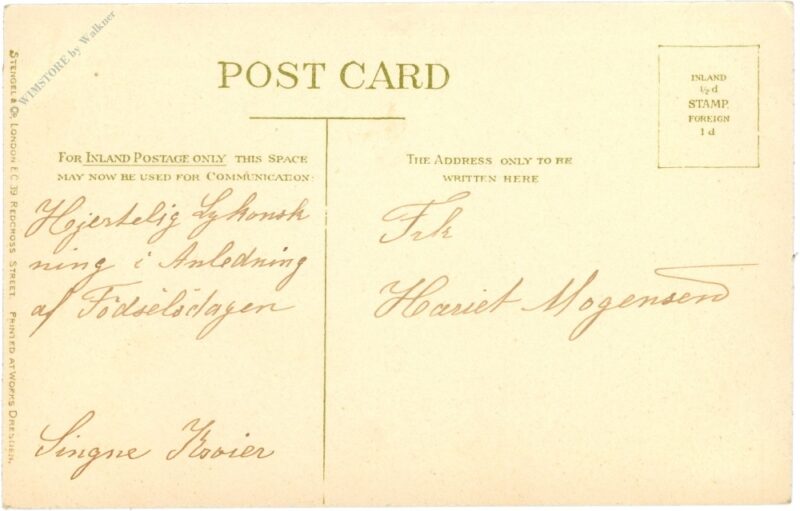 WIMSTORE by Walkner
POST CARD
INLAND
½d
STAMP.
FOREIGN
1d
FOR INLAND POSTAGE ONLY THIS SPACE
MAY NOW BE USED FOR COMMUNICATION
THE ADDRESS ONLY TO BE
WRITTEN HERE
Hjertelig Lykonsk
ning i Anledning
af Födselsdagen
Singne
Frk
Hariet Mogensen
STENGEL & Co., LONDON E.C. 39 REDCROSS STREET. PRINTED AT WORKS DRESDEN.